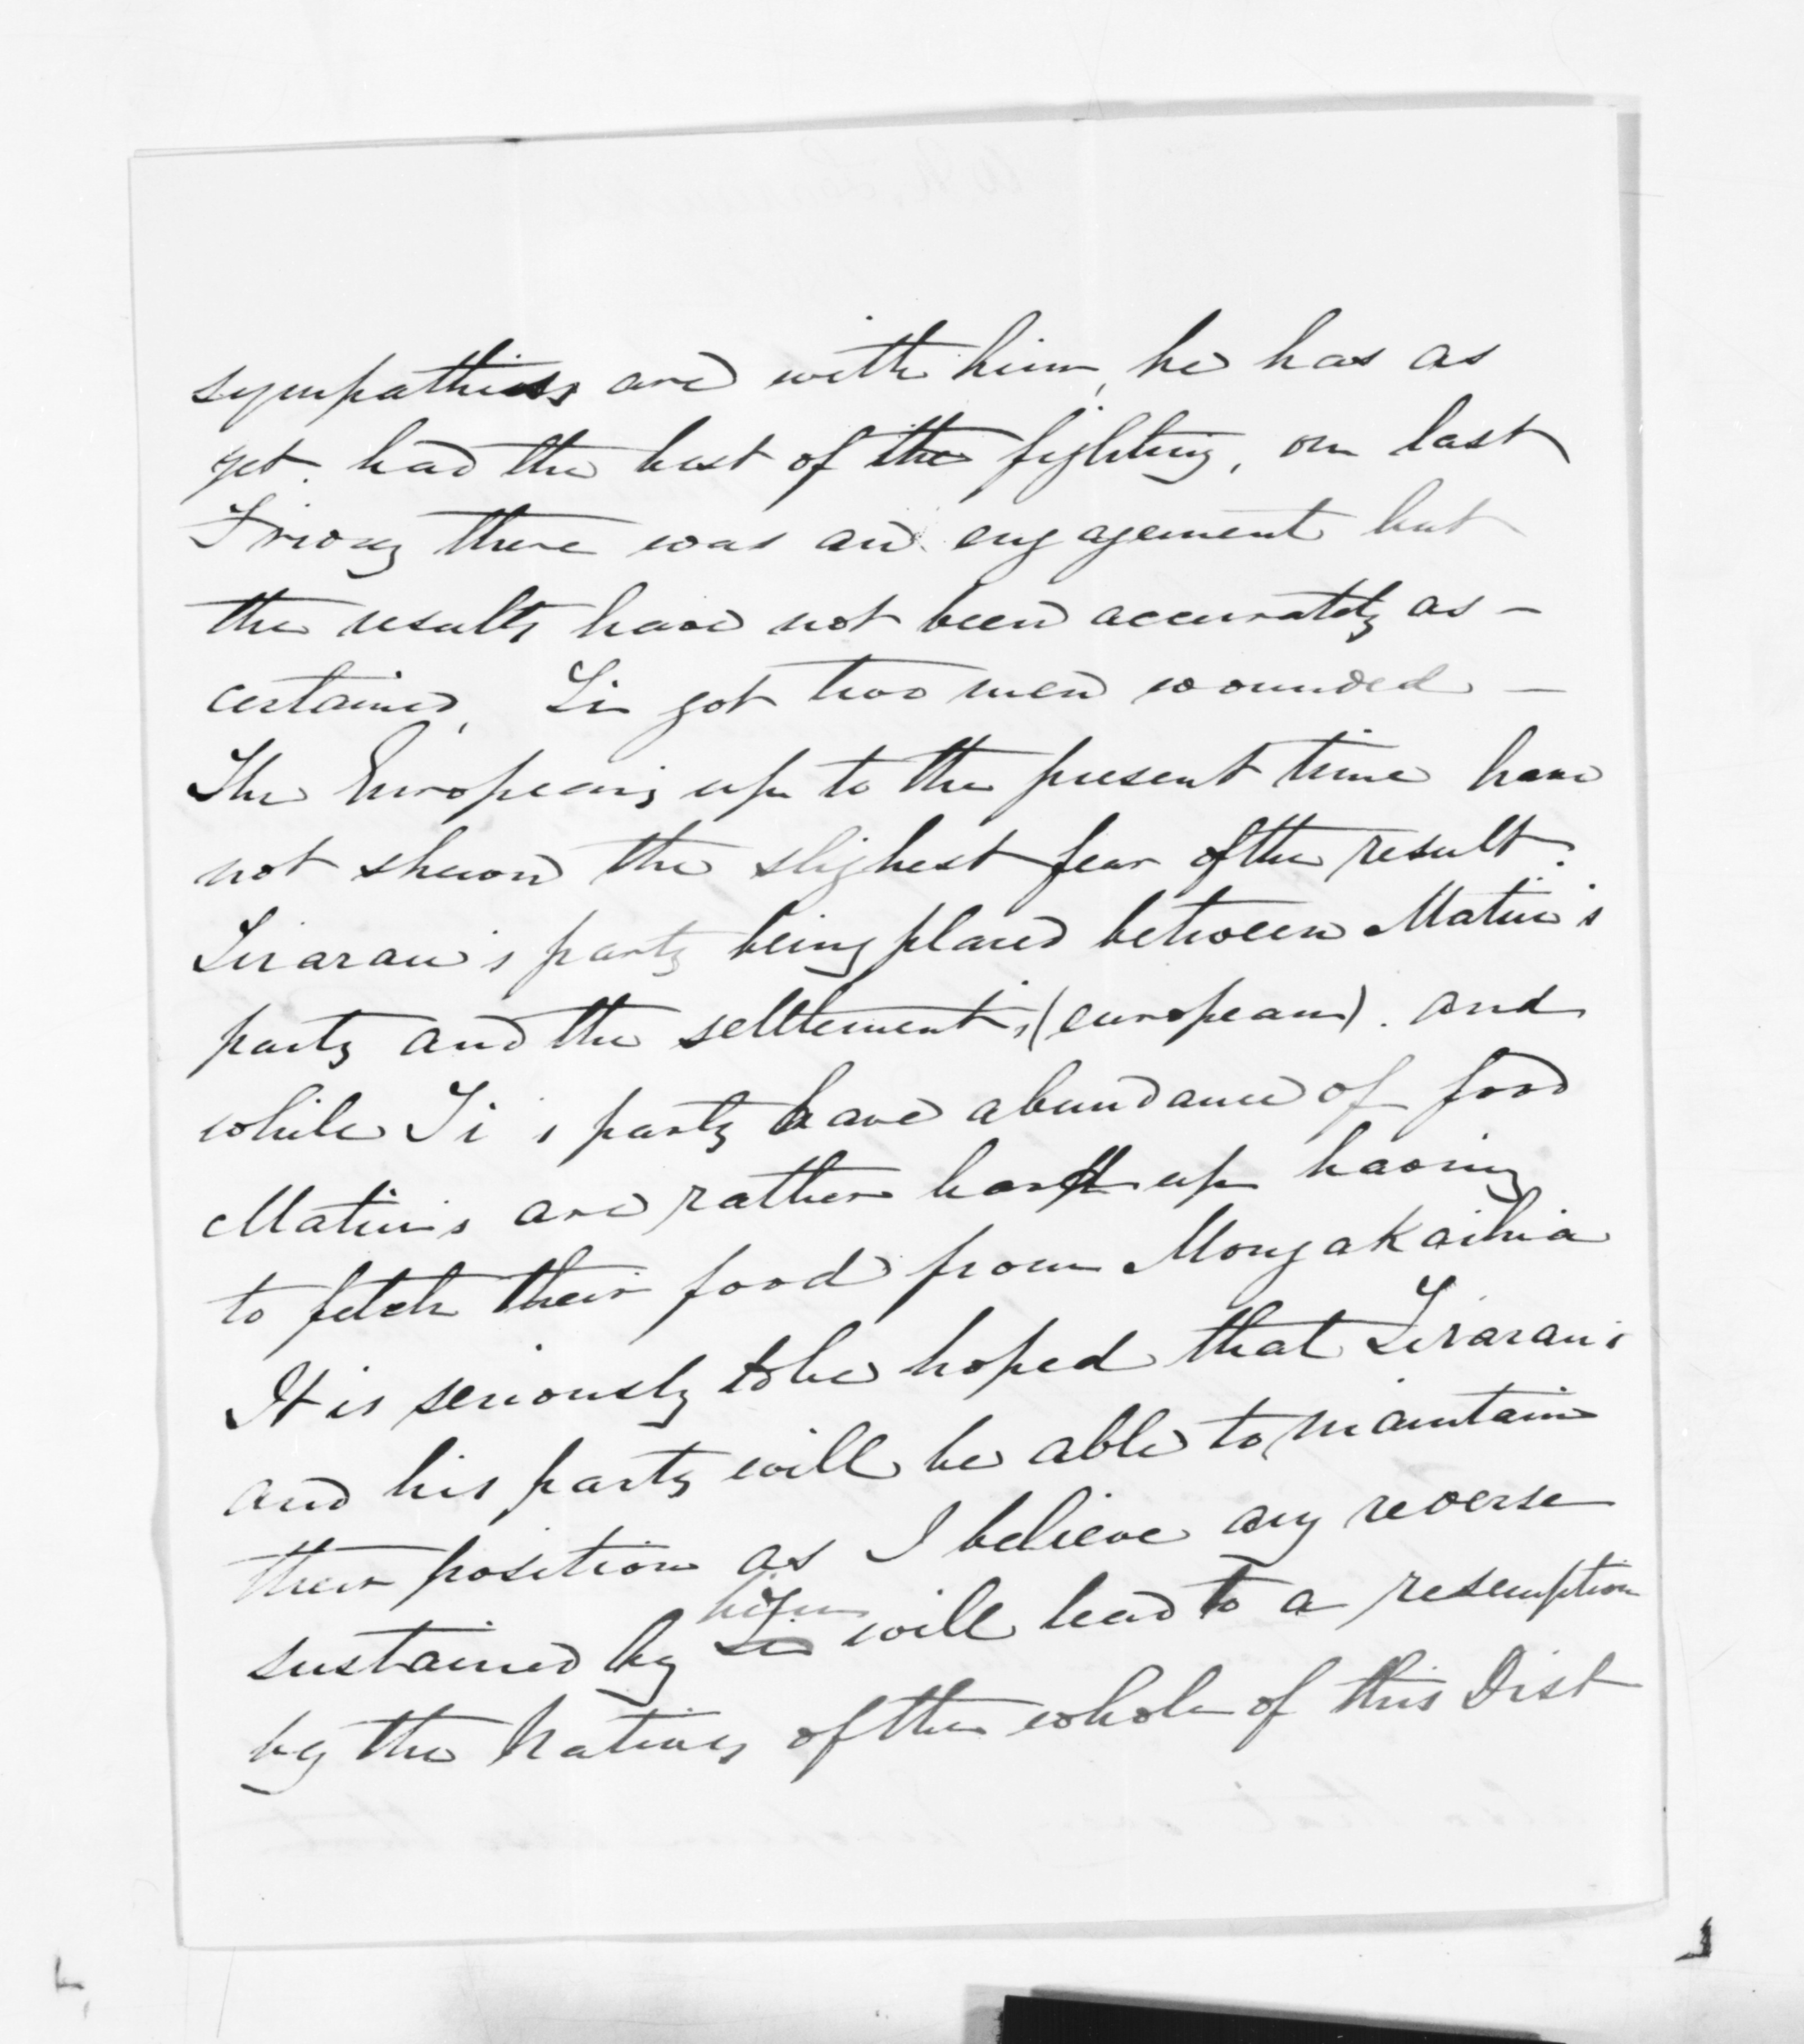 sympathies are with him, he has as
yet had the best of the fighting, on last
Friday there was an engagement but
the results have not been accurately as-
certained, Ti got two men wounded -
The Europeans up to the present time have
not shewn the slighest fear of the result.
Tirarau's party being placed between Matiu's
party and the settlements, (european). and
while Ti's party have abundance of food
Matiu's are rather hard up having
to fetch their food from Mongakaihia
It is seriously to be hoped that Tirarau
and his party will be able to maintain
their position as I believe any reverse
sustained by Ti him will lead to a resemption
by the Natives of the whole of this Dist